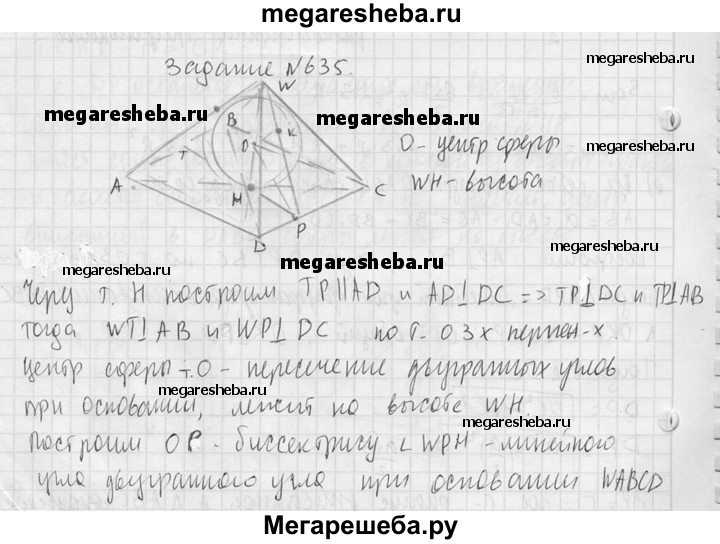 megaresheba.ru
Задание №635.
megaresheba.ru
megaresheba.ru
megaresheba.ru
megaresheba.ru
W
B
K
T
O
A
H
C
P
D
O - центр сферы
WH - высота
megaresheba.ru
megaresheba.ru
megaresheba.ru
Через т. H построим TP||AD и AD⊥DC => TP⊥DC и TP⊥AB
тогда WT⊥AB и WP⊥DC по т. о 3х перпен-х.
megaresheba.ru
Центр сферы т.O - пересечение двугранных углов
megaresheba.ru
при основании, лежит на высоте WH.
megaresheba.ru
Построим OP - биссектрису ∠WPH - линейного
угла двугранного угла при основании WABCD
Мегарешеба.ру